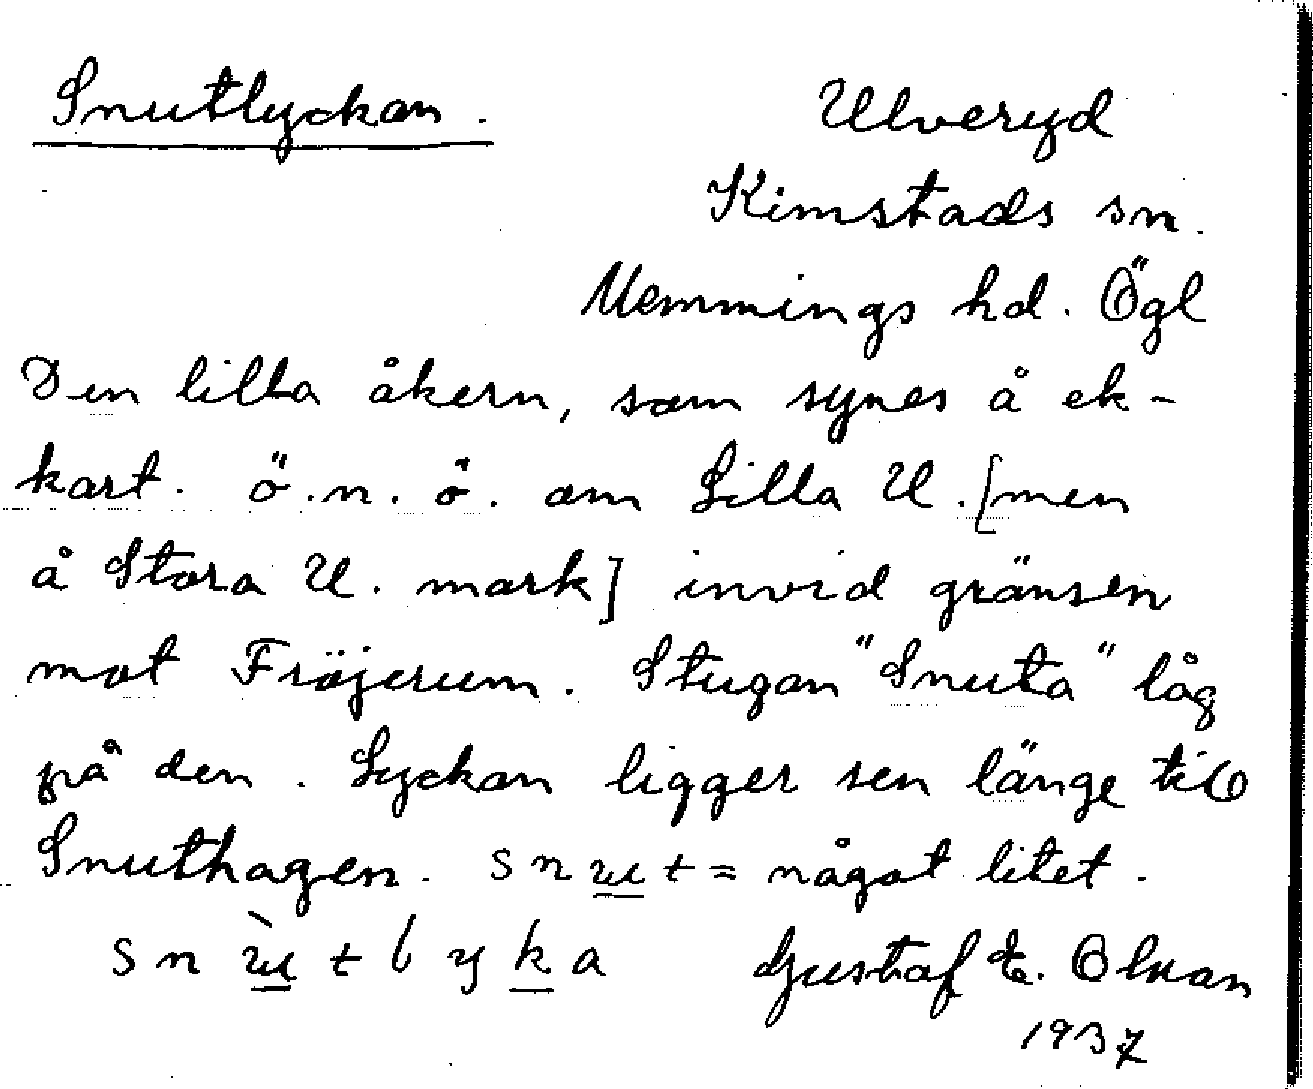 Snutlyckan.
Ulveryd
Kimstads sn.
Memmings hd. Ögl
Den lilla åkern, som synes å ek-
kart. ö.n.ö. om Lilla U. [men
å Stora U. mark] invid gränsen
mot Fröjerum. Stugan "Snuta" låg
på den. Lyckan ligger sen länge till
Snuthagen. snut = något litet.
snùtlyka Gustaf E. Olson
1937